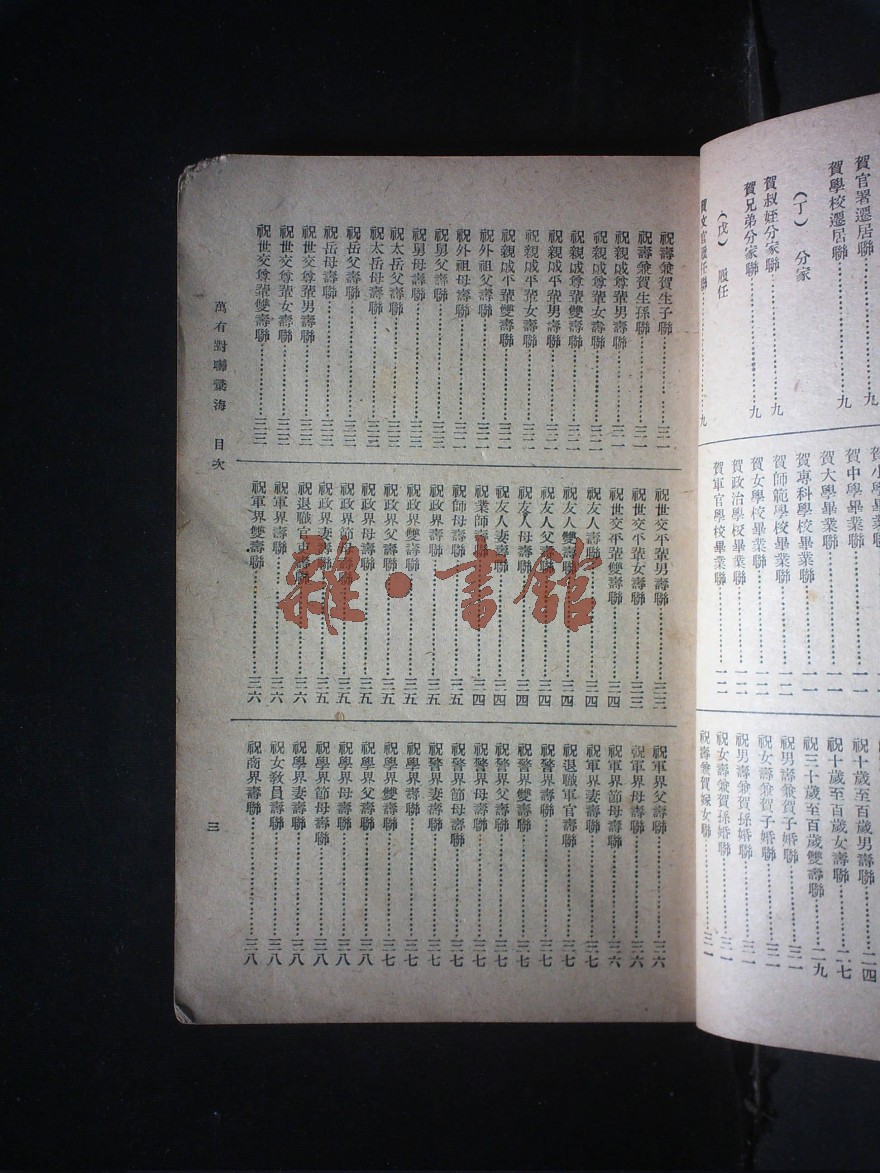 賀官署遷居聯……九
賀學校遷居聯……九
(丁) 分家
賀叔姪分家聯……九
賀兄弟分家聯……九
(戊) 服任
文官服任聯……九
賀小學畢業聯
賀中學畢業聯……一一
賀大學畢業聯……一一
賀專科學校畢業聯……一一
賀師範學校畢業聯……一一
賀女學校畢業聯……一一
賀政治學校畢業聯……一一
賀軍官學校畢業聯……一一
祝十歲至百歲男壽聯……二四
祝十歲至百歲女壽聯……二七
祝三十歲至百歲雙壽聯……二九
祝男壽兼賀子婚聯……三一
祝女壽兼賀子婚聯……三一
祝男壽兼賀孫婚聯……三一
祝女壽兼賀孫婚聯……三一
祝壽兼賀嫁女聯……三一
祝壽兼賀生子聯……三一
祝壽兼賀生孫聯……三一
祝親戚尊輩男壽聯……三一
祝親戚尊輩女壽聯……三二
祝親戚尊輩雙壽聯……三二
祝親戚平輩男壽聯……三二
祝親戚平輩女壽聯……三二
祝親戚平輩雙壽聯……三二
祝外祖父壽聯……三二
祝外祖母壽聯……三二
祝舅父壽聯……三三
祝舅母壽聯……三三
祝太岳父壽聯……三三
祝太岳母壽聯……三三
祝岳父壽聯……三三
祝岳母壽聯……三三
祝世交尊輩男壽聯……三三
祝世交尊輩女壽聯……三三
祝世交尊輩雙壽聯……三三
祝世交平輩男壽聯……三三
祝世交平輩女壽聯……三三
祝世交平輩雙壽聯……三四
祝友人壽聯……三四
祝友人雙壽聯……三四
祝友人父壽聯……三四
祝友人母壽聯……三四
祝友人妻壽聯……三四
祝業師壽聯……三四
祝師母壽聯……三五
祝政界壽聯……三五
祝政界雙壽聯……三五
祝政界父壽聯……三五
祝政界母壽聯……三五
祝政界節母壽聯……三五
祝政界妻壽聯……三五
祝退職官吏壽聯……三六
祝軍界壽聯……三六
祝軍界雙壽聯……三六
祝軍界父壽聯……三六
祝軍界母壽聯……三六
祝軍界節母壽聯……三六
祝軍界妻壽聯……三七
祝退職軍官壽聯……三七
祝警界壽聯……三七
祝警界雙壽聯……三七
祝警界父壽聯……三七
祝警界母壽聯……三七
祝警界節母壽聯……三七
祝警界妻壽聯……三七
祝學界壽聯……三七
祝學界雙壽聯……三七
祝學界父壽聯……三八
祝學界母壽聯……三八
祝學界節母壽聯……三八
祝學界妻壽聯……三八
祝女教員壽聯……三八
祝商界壽聯……三八
萬有對聯彙海 目次
三
雜·書館